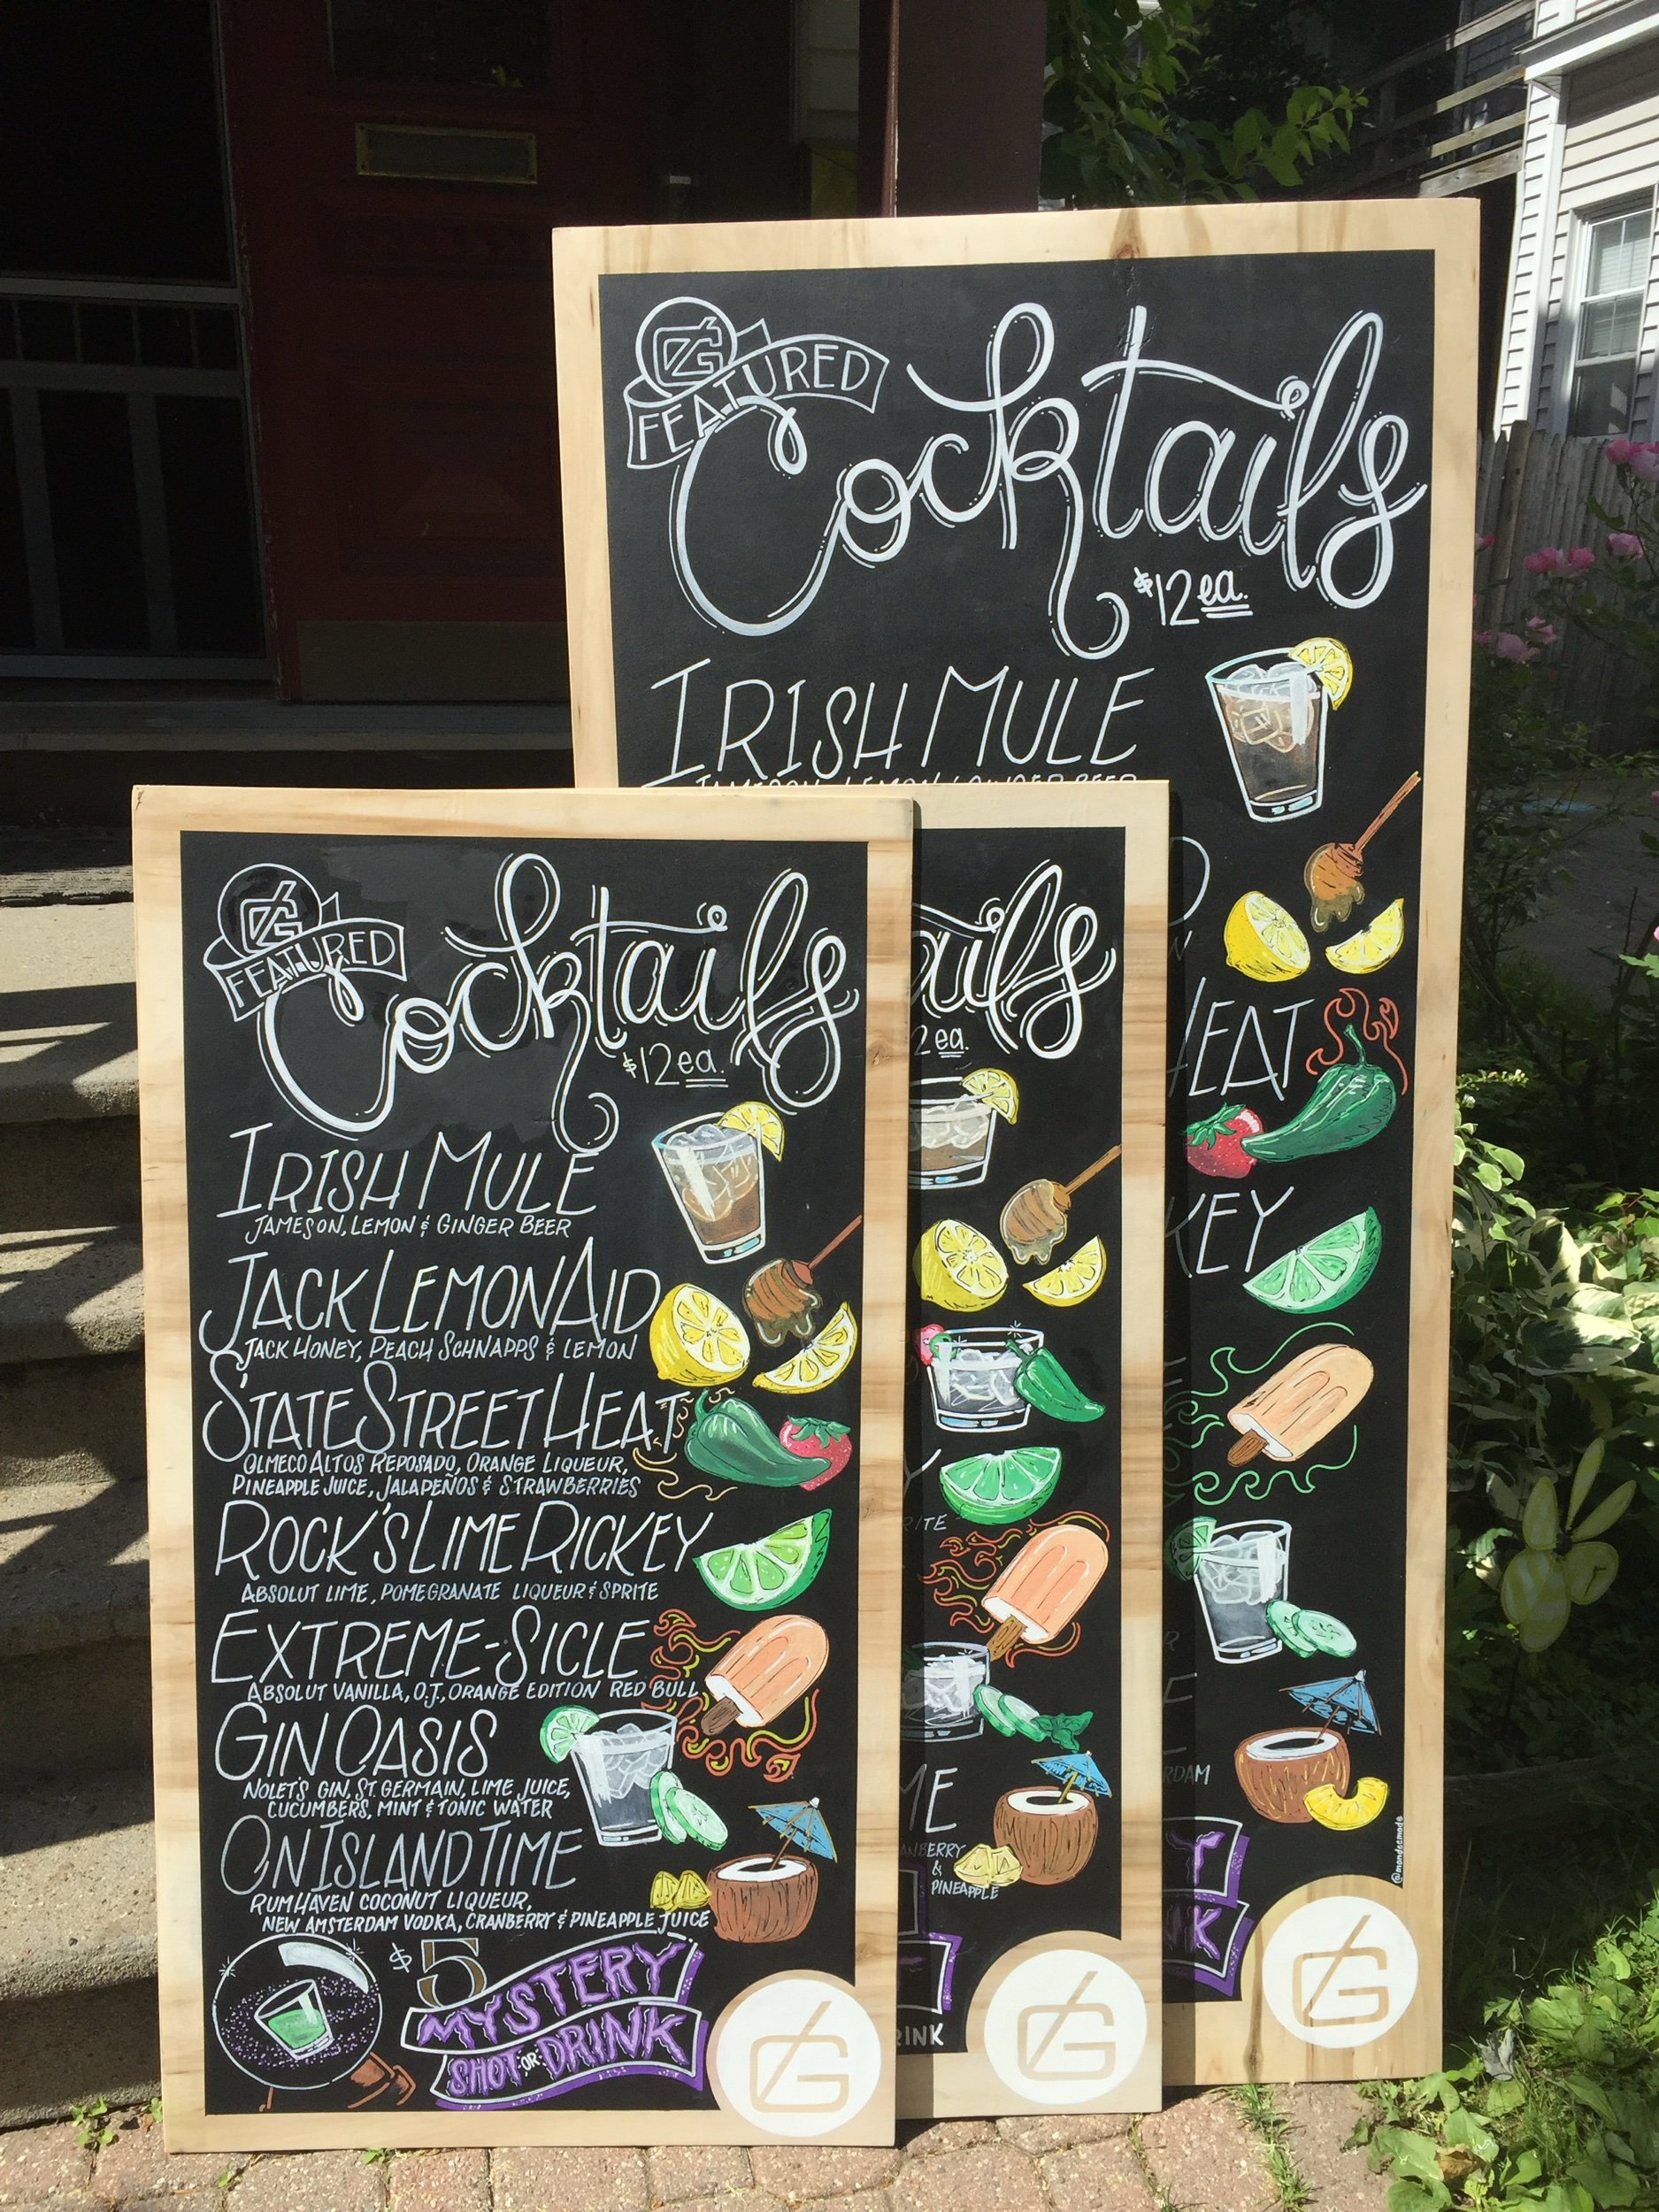 FEATURED
Cocktails
$12 ea.
IRISH MULE
FEATURED
Cocktails
$12 ea.
IRISH MULE
JAMESON, LEMON & GINGER BEER
JACK LEMONAID
JACK HONEY, PEACH SCHNAPPS & LEMON
STATE STREET HEAT
OLMECO ALTOS REPOSADO, ORANGE LIQUEUR,
PINEAPPLE JUICE, JALAPEÑOS & STRAWBERRIES
ROCK'S LIME RICKEY
ABSOLUT LIME, POMEGRANATE LIQUEUR & SPRITE
EXTREME-SICLE
ABSOLUT VANILLA, O.J., ORANGE EDITION RED BULL
GIN OASIS
NOLET'S GIN, ST. GERMAIN, LIME JUICE,
CUCUMBERS, MINT & TONIC WATER
ON ISLAND TIME
RUMHAVEN COCONUT LIQUEUR,
NEW AMSTERDAM VODKA, CRANBERRY & PINEAPPLE JUICE
$5 MYSTERY
SHOT OR DRINK
G
ails
2 ea.
Y
RITE
ME
ANBERRY
&
PINEAPPLE
RINK
G
HEAT
KEY
RDAM
T
NK
@mandaemade
G